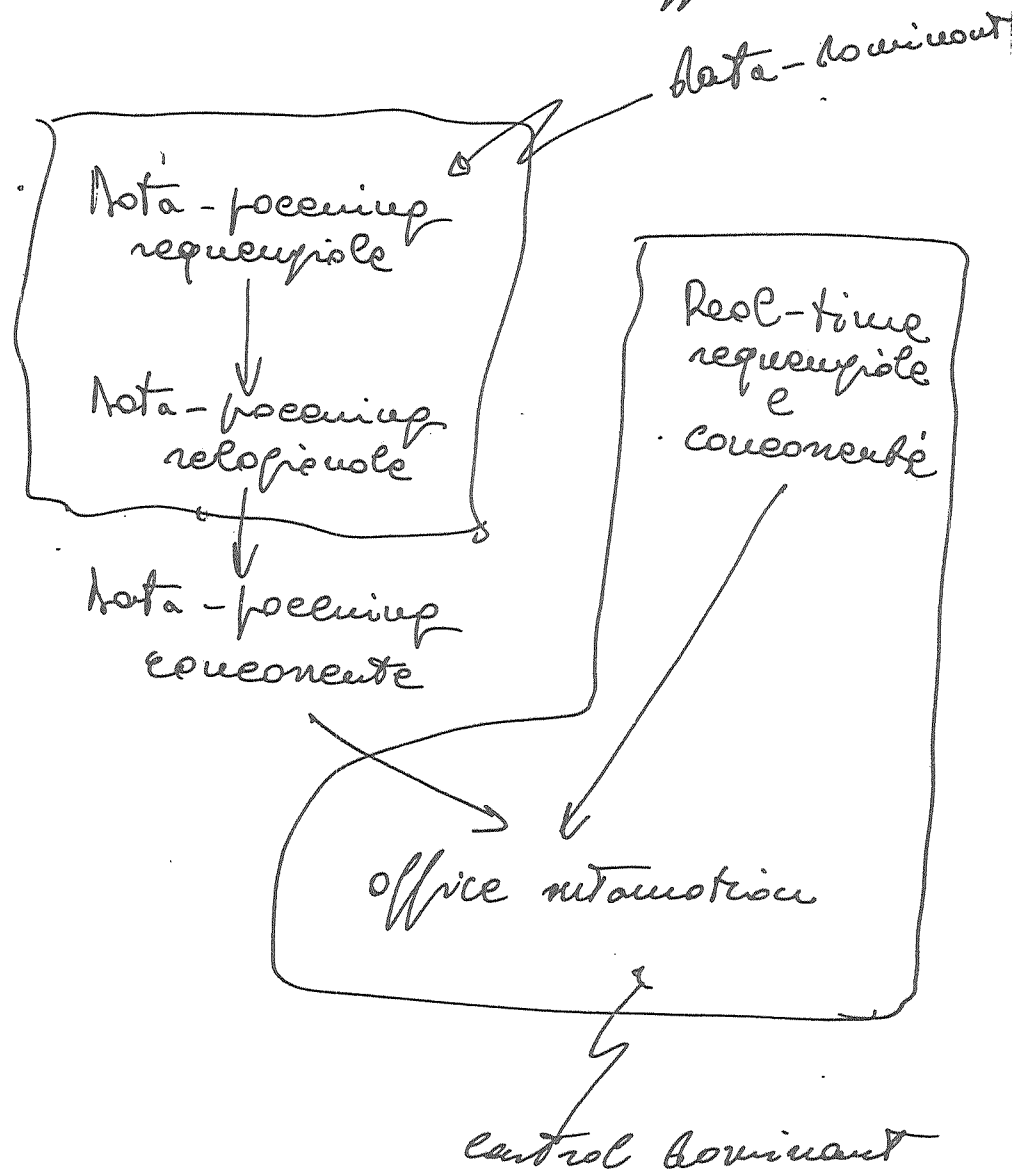 Data-dominant
Data-processing
sequenziale
Data-processing
relazionale
Data-processing
concorrente
Real-time
sequenziale
e
concorrente
office automation
control dominant